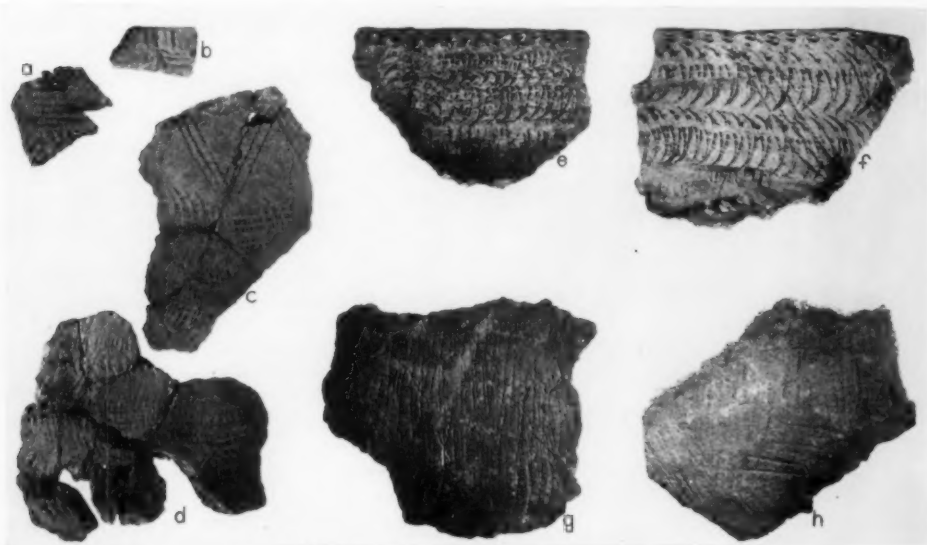 a
b
c
d
e
f
g
h